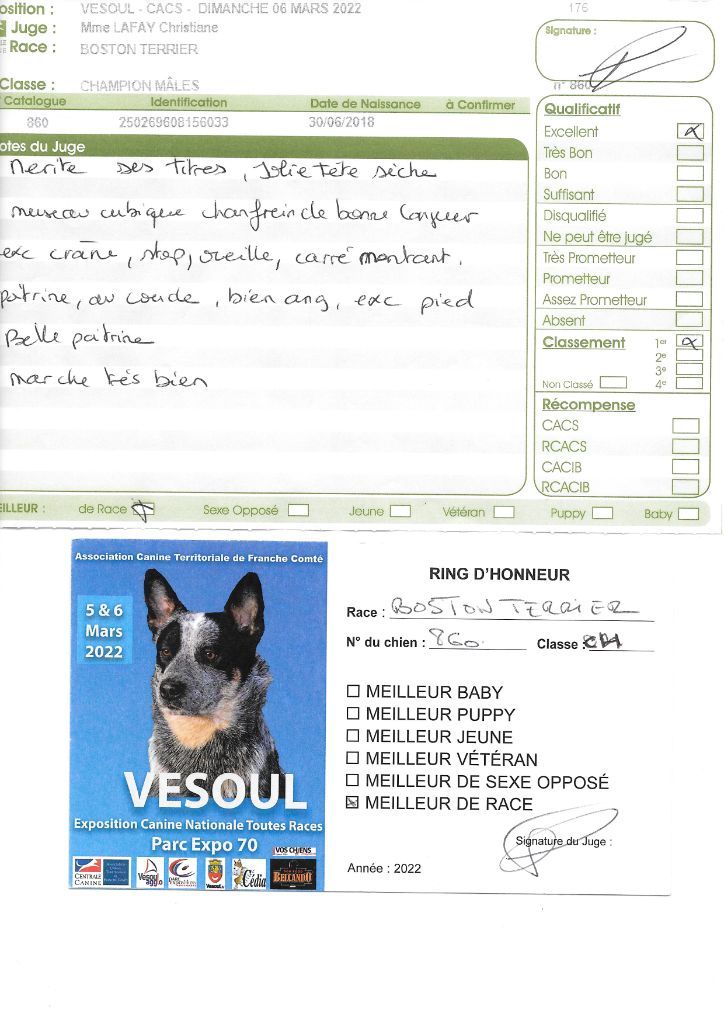 osition : VESOUL - CACS - DIMANCHE 06 MARS 2022 176
Juge : Mme LAFAY Christiane
Race : BOSTON TERRIER
Signature :
Classe : CHAMPION MÂLES n° 860
Catalogue Identification Date de Naissance à Confirmer
860 250269608156033 30/06/2018
otes du Juge
Merite ses titres, Jolie tete sèche
museau cubique chanfrein de bonne longueur
exc crâne, stop, oreille, carré montant,
poitrine, au coude, bien ang, exc pied
Belle poitrine
marche très bien
Qualificatif
Excellent
Très Bon
Bon
Suffisant
Disqualifié
Ne peut être jugé
Très Prometteur
Prometteur
Assez Prometteur
Absent
Classement 1er
2e
3e
Non Classé 4e
Récompense
CACS
RCACS
CACIB
RCACIB
EILLEUR : de Race Sexe Opposé Jeune Vétéran Puppy Baby
Association Canine Territoriale de Franche Comté
5 & 6
Mars
2022
VESOUL
Exposition Canine Nationale Toutes Races
Parc Expo 70
VOS CHIENS
CENTRALE
CANINE
Vesoul
agglo
VESOUL
Cédia
BELLANDO
RING D'HONNEUR
Race : BOSTON TERRIER
N° du chien : 860. Classe : CH
MEILLEUR BABY
MEILLEUR PUPPY
MEILLEUR JEUNE
MEILLEUR VÉTÉRAN
MEILLEUR DE SEXE OPPOSÉ
MEILLEUR DE RACE
Signature du Juge :
Année : 2022